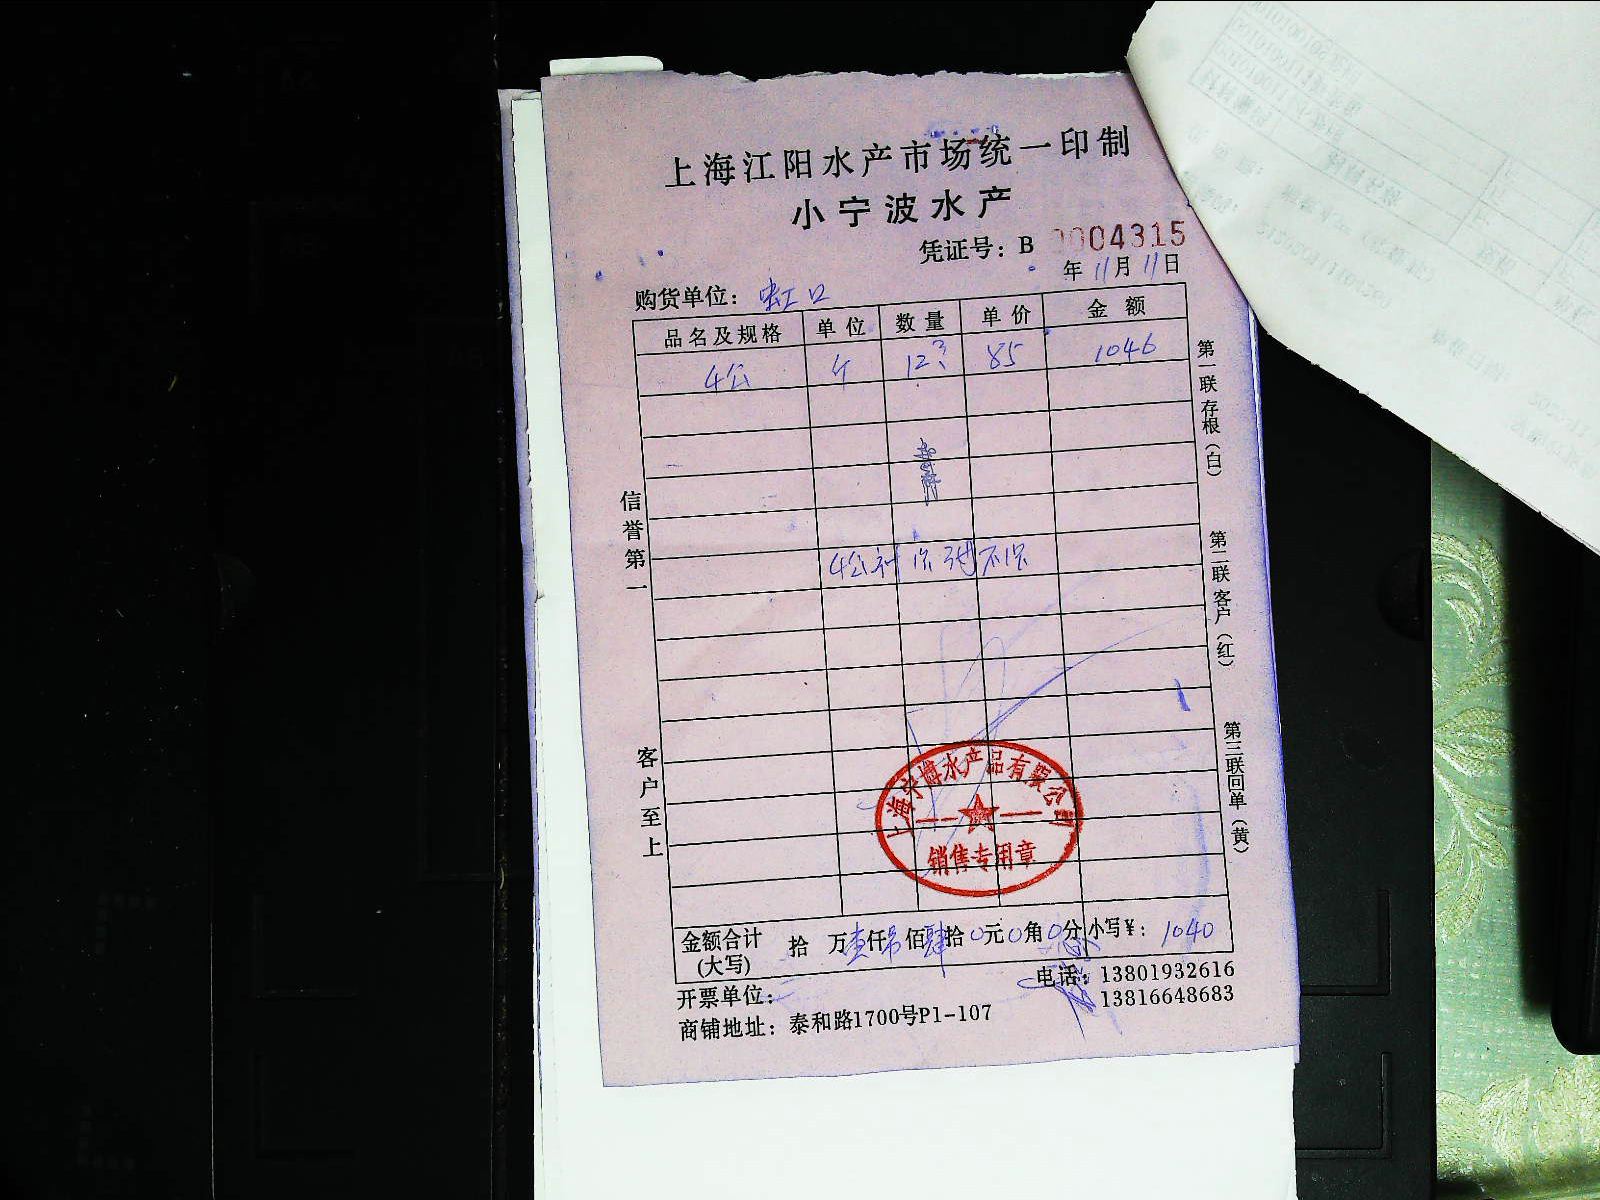 上海江阳水产市场统一印制
小宁波水产
凭证号：B 0004315
年 11月 11日
购货单位：虹口
品名及规格 单位 数量 单价 金额
4公 斤 12 85 1046
4公 不
信誉第一
客户至上
第一联存根（白）
第二联客户（红）
第三联回单（黄）
上海宁博水产品有限公司
销售专用章
金额合计（大写） 拾 万壹仟 佰肆拾0元0角0分 小写¥：1040
开票单位：
电话：13801932616
13816648683
商铺地址：泰和路1700号P1-107